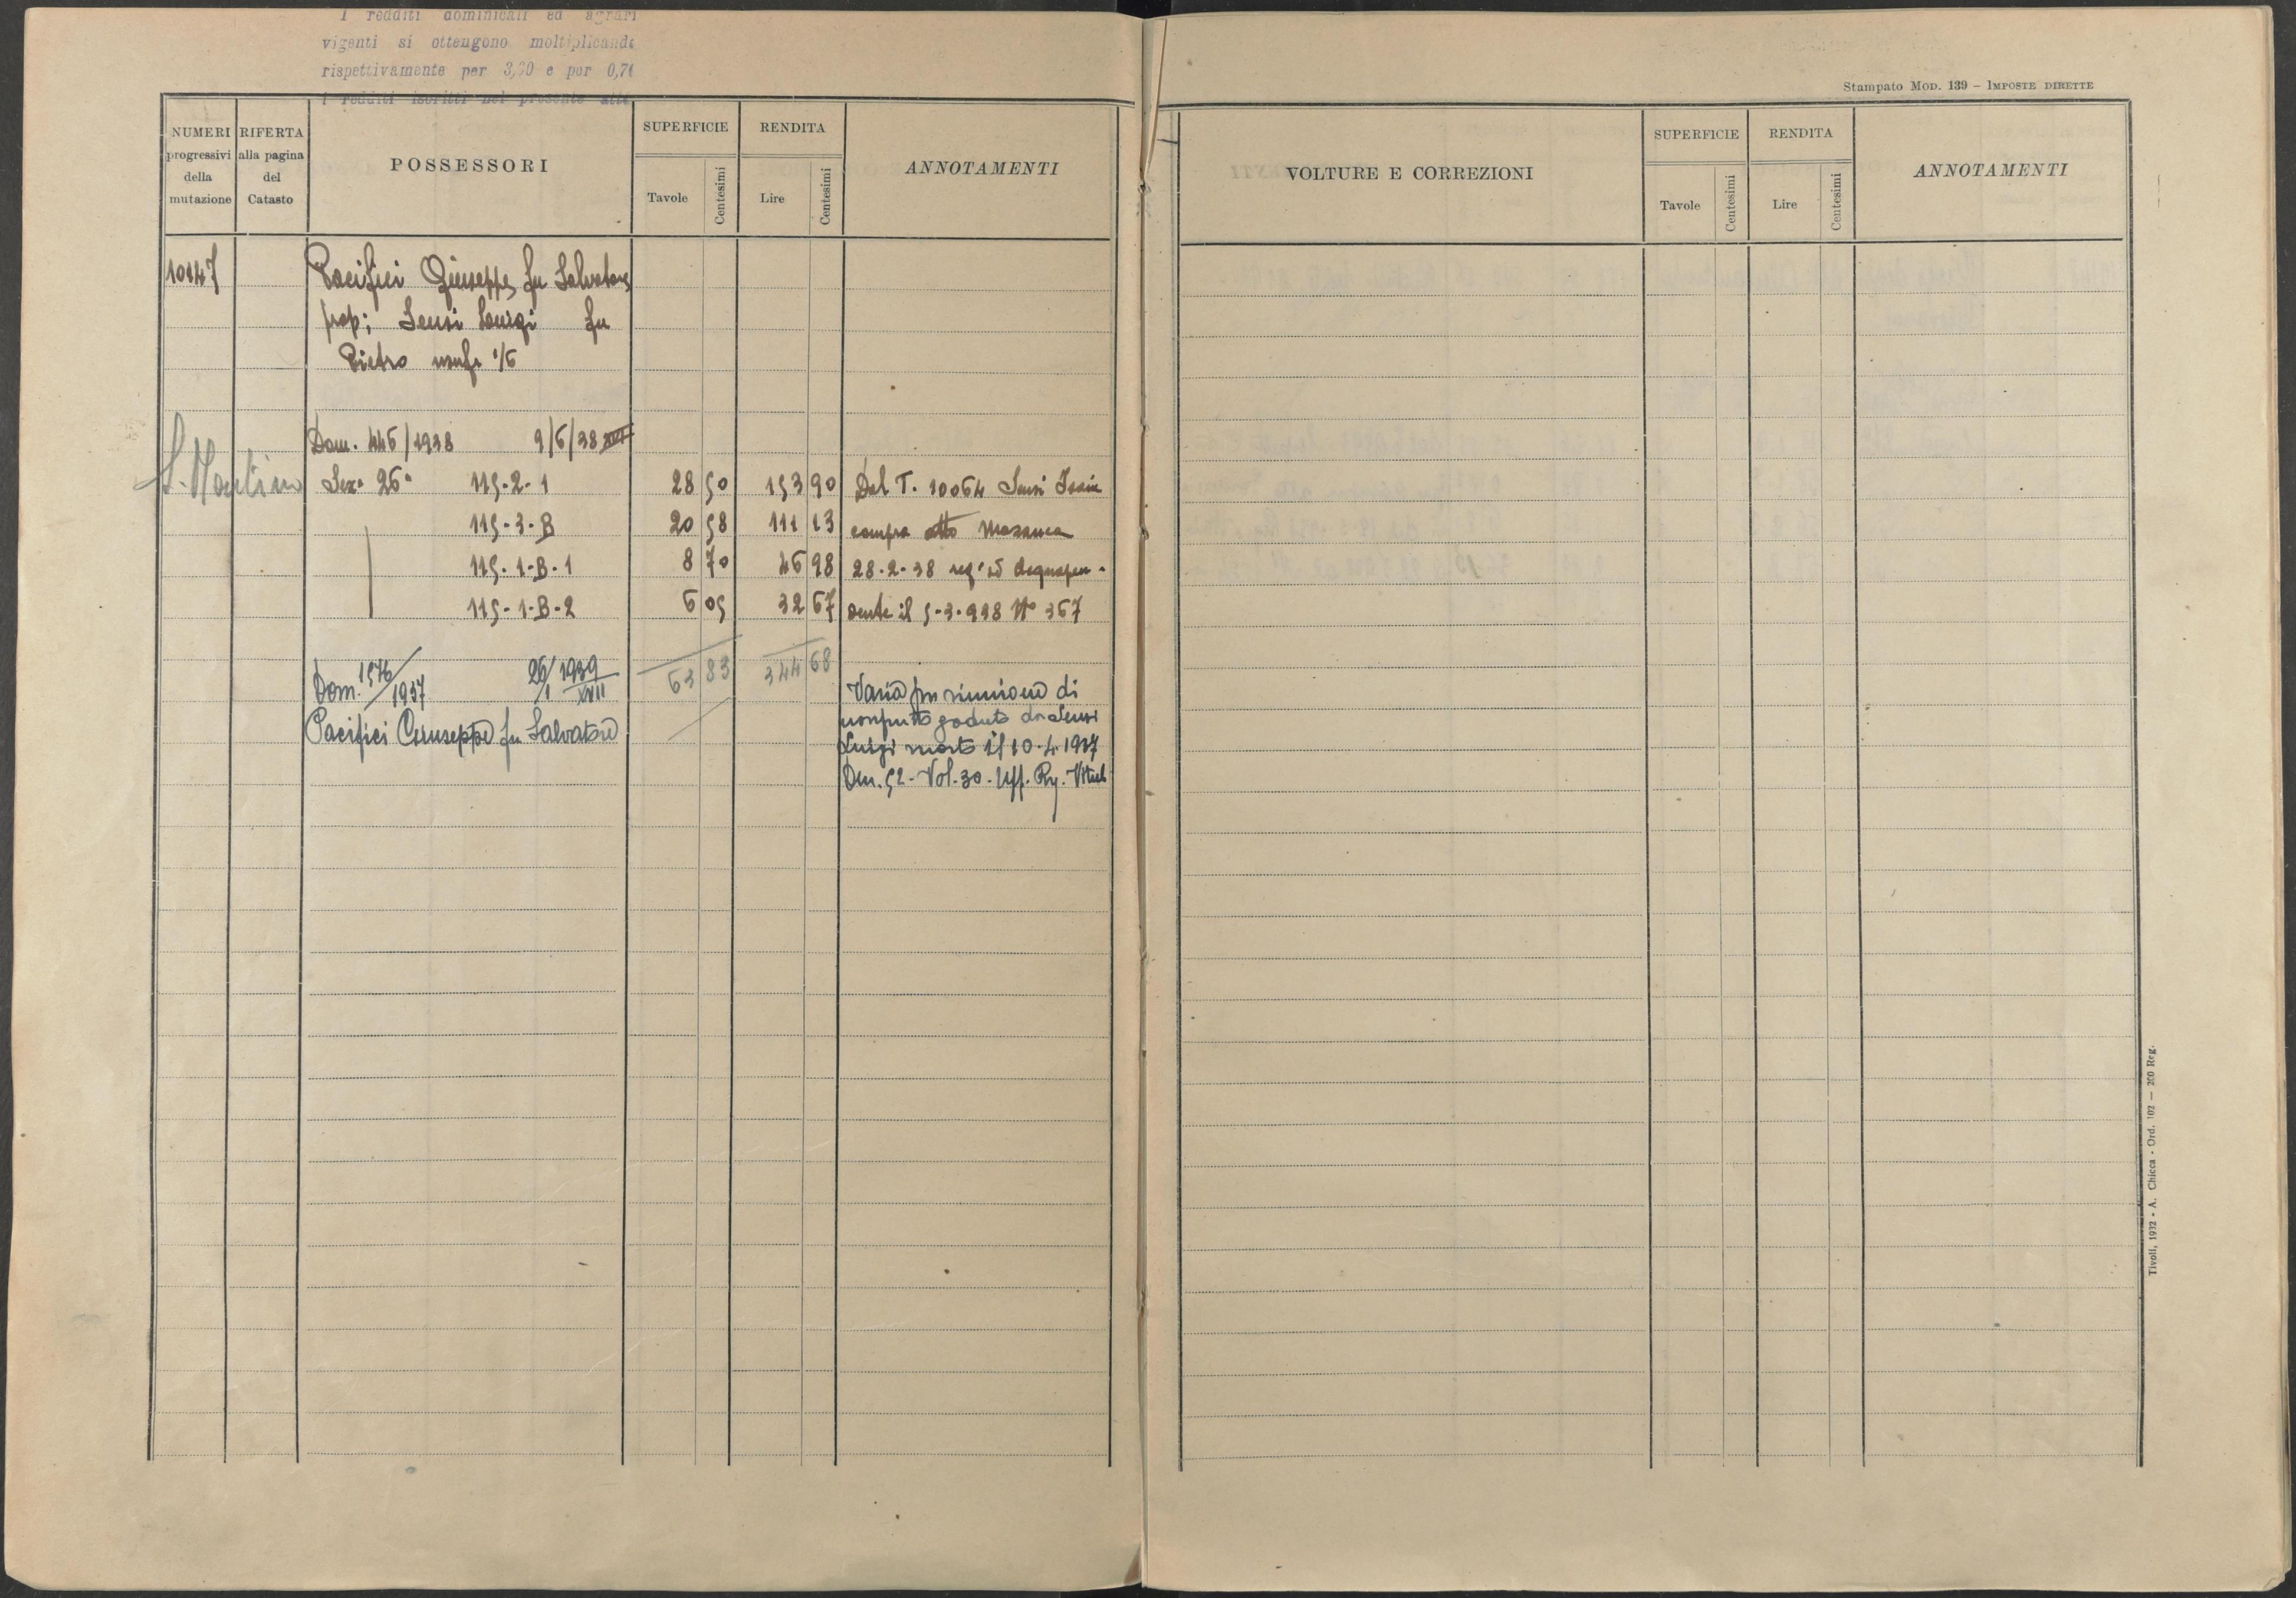 I redditi dominicali ed agrari
vigenti si ottengono moltiplicando
rispettivamente per 3,20 e per 0,7
i redditi iscritti nel presente atto
Stampato Mod. 139 – Imposte dirette
NUMERI progressivi della mutazione
RIFERTA alla pagina del Catasto
POSSESSORI
SUPERFICIE
Tavole Centesimi
RENDITA
Lire Centesimi
ANNOTAMENTI
VOLTURE E CORREZIONI
SUPERFICIE
Tavole Centesimi
RENDITA
Lire Centesimi
ANNOTAMENTI
10147 Pacifici Giuseppe fu Salvatore
prop; Sensi Luigi fu
Pietro usufr 1/6
Dom. 446/1938 9/6/38 XVI
S. Martino Sez. 26ª 115-2-1 28 50 153 90 Dal T. 10064 Sensi
115-3-B 20 58 111 13 compra atto
115-1-B-1 8 70 46 98 28-2-38 reg'to Acquapen-
115-1-B-2 6 05 32 67 dente il 5-3-938 Nº 367
63 83 344 68
Dom. 1576/1937 26/1 1939 XVII
Varia per riunione di
Pacifici Giuseppe fu Salvatore
usufrutto goduto da Sensi
Luigi morto il 10-4-1937
Den. 52 - Vol. 30 - Uff. Rg. Viterb
Tivoli, 1932 - A. Chicca - Ord. 102 — 200 Reg.